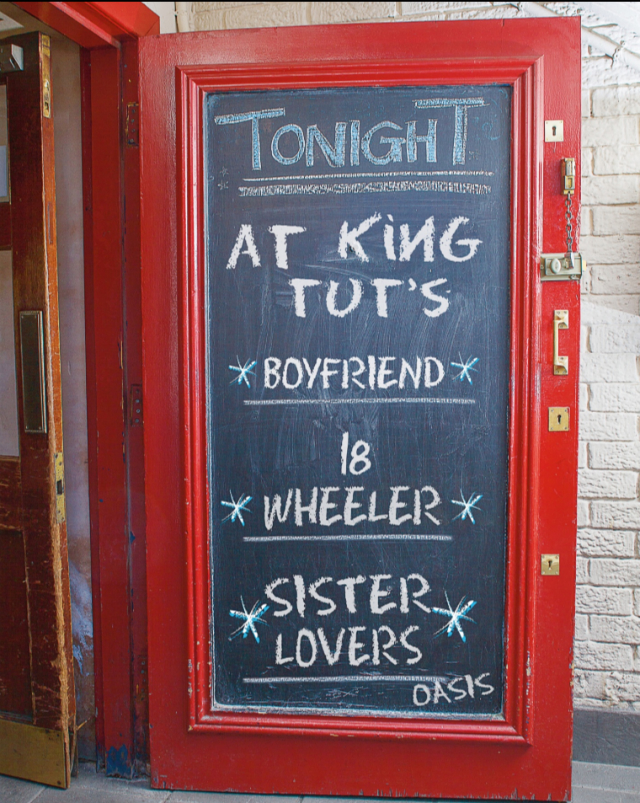 TONIGHT
AT KING
TUT'S
BOYFRIEND
18
WHEELER
SISTER
LOVERS
OASIS